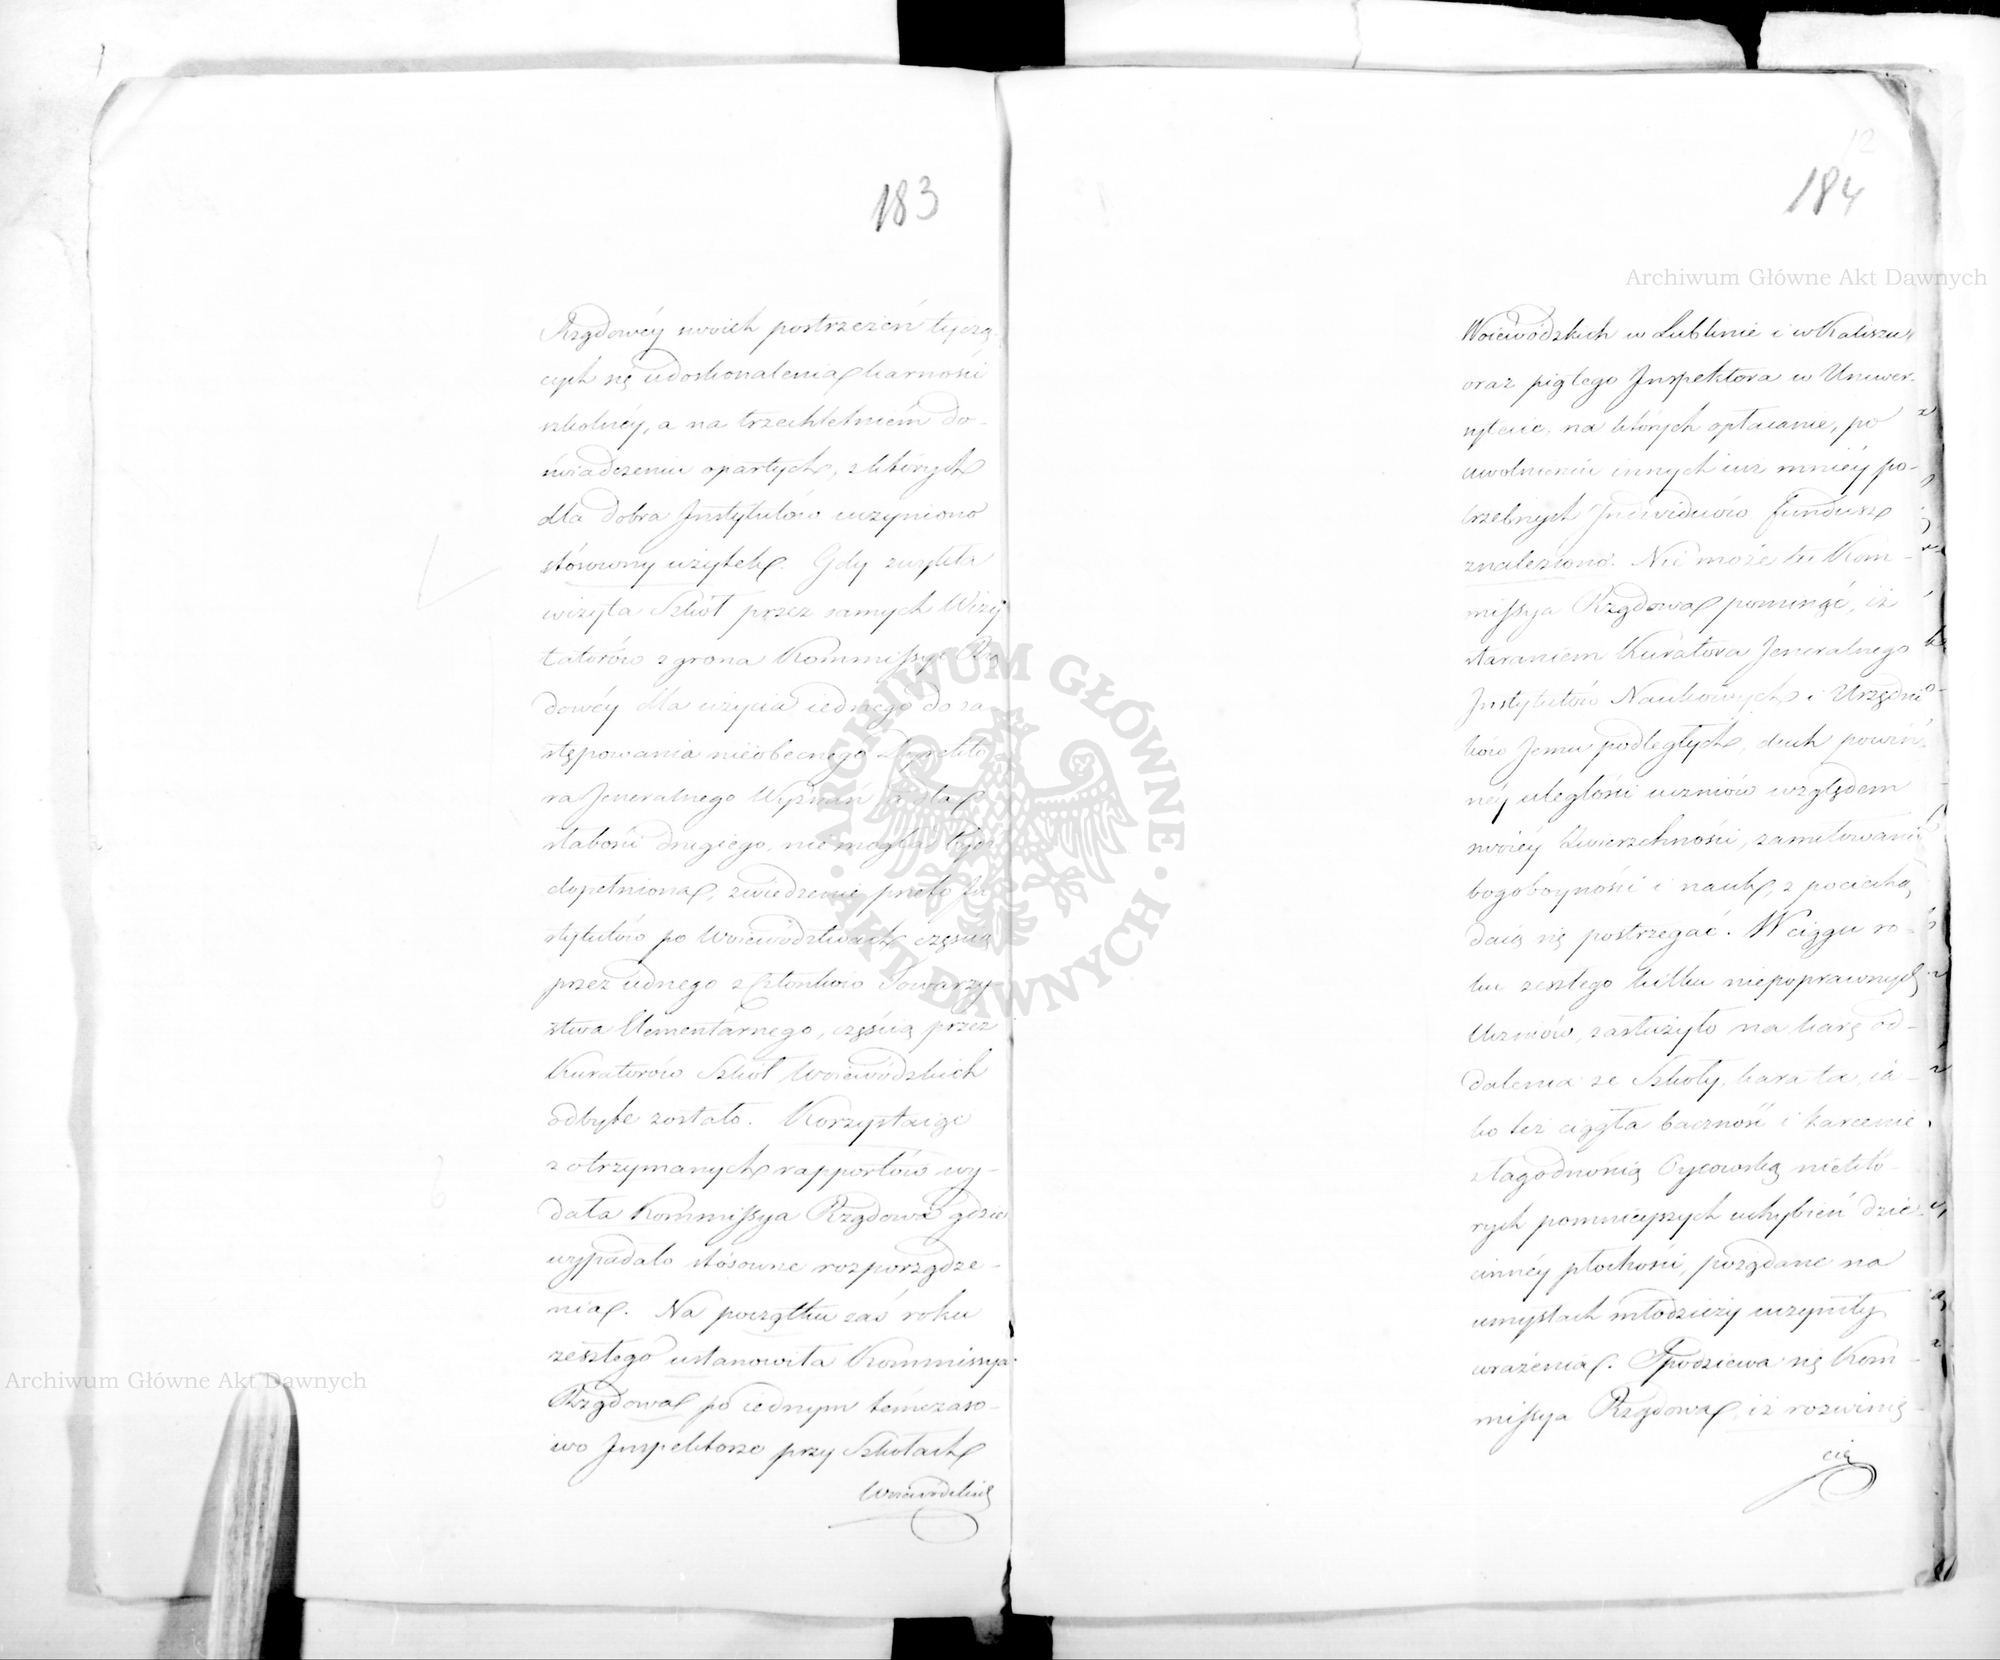 183
Rządowéy swoich postrzeżeń tyczą-
cych się udoskonalenia karności
szkolnéy, a na trzechletniém do-
świadczeniu opartych, z których
dla dobra Instytutów uczyniono
stósowny użytek. Gdy zwykła
wizyta Szkół przez samych Wizy
tatorów z grona Kommissyi Rzą
dowéy dla użycia iednego do za
stępowania nieobecnego Dyrekto
ra Jeneralnego Wyznań, a dla
słabości drugiego, nie mogła bydź
dopełniona, zwiedzenie przeto In
stytutów po Woiewództwach częścią
przez iednego z Członków Towarzy-
stwa Elementarnego, częścią przez
Kuratorów Szkół Woiewódzkich
odbyte zostało. Korzystaiąc
z otrzymanych rapportów wy-
dała Kommissya Rządowa gdzie
wypadało stósowne rozporządze-
nia. Na początku zaś roku
zeszłego ustanowiła Kommissya
Rządowa po iednym tymczaso-
wo Inspektorze przy Szkołach
Woiewódzkich
12
184
Woiewódzkich w Lublinie i w Kaliszu,
oraz piątego Inspektora w Uniwer-
sytecie, na których opłacanie, po
uwolnieniu innych iuż mniéy po-
trzebnych Individuów fundusz
znaleziono. Nie może tu Kom-
missya Rządowa pominąć, iż
staraniem Kuratora Jeneralnego
Instytutów Naukowych i Urzędni
ków Jemu podległych, duch powin-
néy uległości uczniów względem
swoiéy Zwierzchności, zamiłowanie
bogoboyności i nauk, z pociechą
daią się postrzegać. W ciągu ro-
ku zeszłego kilku niepoprawnych
Uczniów, zasłużyło na karę od-
dalenia ze Szkoły, kara ta, ia-
ko też ciągła baczność i karcenie
z łagodnością Oycowską niektó-
rych pomnieyszych uchybień dzie-
cinnéy płochości, pożądane na
umysłach młodzieży uczyniły
wrażenia. Spodziewa się Kom-
missya Rządowa, iż rozwinię-
cie
Archiwum Główne Akt Dawnych
Archiwum Główne Akt Dawnych
ARCHIWUM GŁÓWNE
AKT DAWNYCH